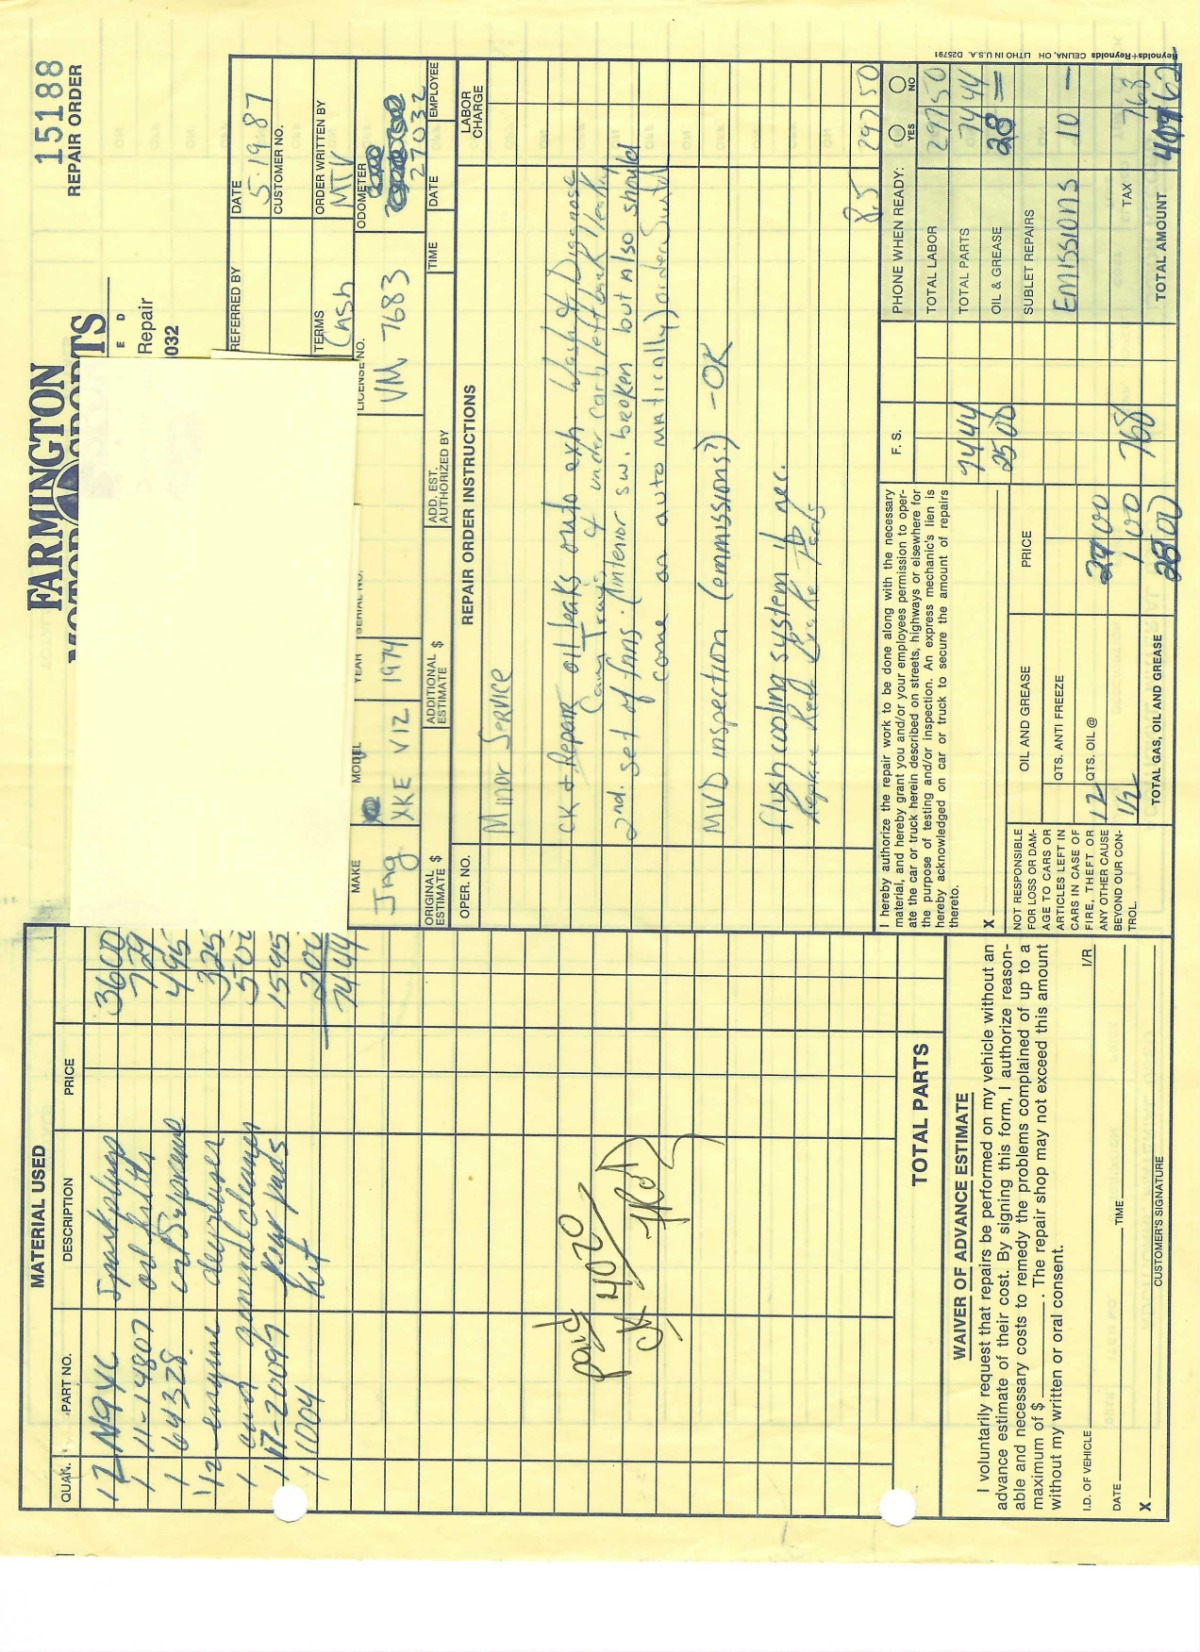 FARMINGTON
MOTORSPORTS
E D
Repair
032
15188
REPAIR ORDER
REFERRED BY
DATE
5-19-87
CUSTOMER NO.
TERMS
Cash
ORDER WRITTEN BY
MTK
MAKE
Jag
MODEL
XKE V12
YEAR
1974
SERIAL NO.
LICENSE NO.
VM 7683
ODOMETER
27032
ORIGINAL ESTIMATE $
ADDITIONAL ESTIMATE $
ADD. EST. AUTHORIZED BY
TIME
DATE
EMPLOYEE
OPER. NO.
REPAIR ORDER INSTRUCTIONS
LABOR CHARGE
Minor Service
CK & Repair oil leaks onto exh. Diagnose
under carb left bank
2nd. set of fans. (interior sw. broken but also should
come on automatically) order
MVD inspection (emmissions?) -OK
flush cooling system if nec.
Replace Rear Brake Pads
8.5 297 50
I hereby authorize the repair work to be done along with the necessary
material, and hereby grant you and/or your employees permission to oper-
ate the car or truck herein described on streets, highways or elsewhere for
the purpose of testing and/or inspection. An express mechanic's lien is
hereby acknowledged on car or truck to secure the amount of repairs
thereto.
X
NOT RESPONSIBLE
FOR LOSS OR DAM-
AGE TO CARS OR
ARTICLES LEFT IN
CARS IN CASE OF
FIRE, THEFT OR
ANY OTHER CAUSE
BEYOND OUR CON-
TROL.
OIL AND GREASE
PRICE
QTS. ANTI FREEZE
12 QTS. OIL @
1/2 1 00
TOTAL GAS, OIL AND GREASE
F. S.
74 44
25 00
7 68
PHONE WHEN READY:
YES
NO
TOTAL LABOR 297 50
TOTAL PARTS 74 44
OIL & GREASE 28 =
SUBLET REPAIRS
EMISSIONS 10 -
TAX 7 68
TOTAL AMOUNT
Reynolds+Reynolds CELINA, OH LITHO IN U.S.A. D25791
MATERIAL USED
QUAN.
PART NO.
DESCRIPTION
PRICE
12 N9YC Sparkplugs 36 00
1 11-14807 oil filter 7 29
1 64328 4 95
1/2 engine degreaser 3 25
1 cleaner 5 00
1 17-20097 Rear pads 15 95
1 1004 Kit 2 00
74 44
paid
4020
CK
TOTAL PARTS
WAIVER OF ADVANCE ESTIMATE
I voluntarily request that repairs be performed on my vehicle without an
advance estimate of their cost. By signing this form, I authorize reason-
able and necessary costs to remedy the problems complained of up to a
maximum of $ . The repair shop may not exceed this amount
without my written or oral consent.
I.D. OF VEHICLE
I/R
DATE
TIME
X
CUSTOMER'S SIGNATURE